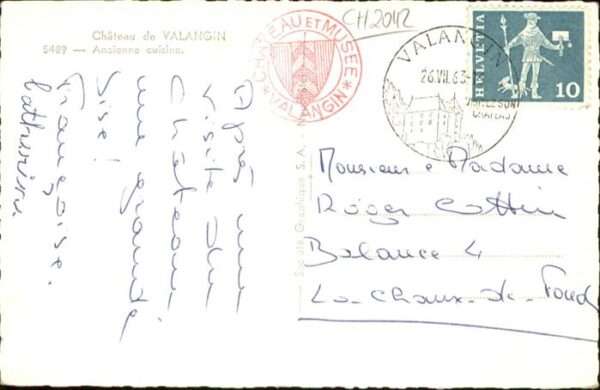 Château de VALANGIN
5489 — Ancienne cuisine.
CHÂTEAU ET MUSÉE
* VALANGIN *
CH 2042
VALANGIN
26.VII.63
CHATEAU
HELVETIA
10
Après une
visite du
Château
une grande
bise!
Françoise.
Catherine
Société Graphique S.A.
Monsieur & Madame
Roger Cottin
Balance 4
La-Chaux-de-Fonds